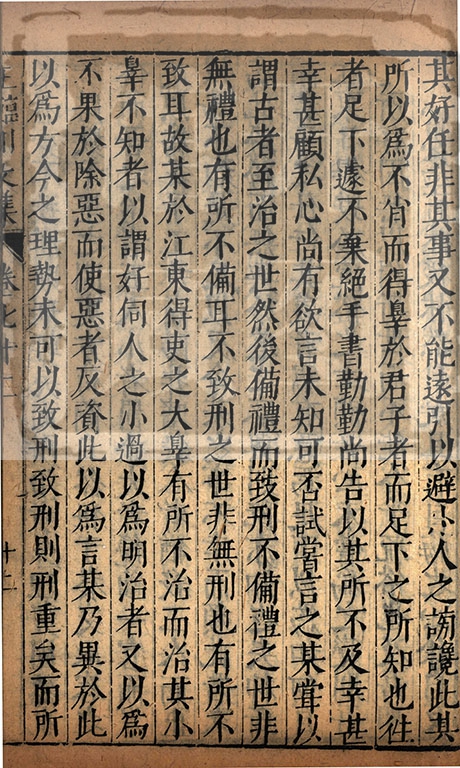 其好任非其事又不能遠引以避小人之謗讒此其
所以為不肖而得辠於君子者而足下之所知也徃
者足下遽不棄絕手書勤勤尚告以其所不及幸甚
幸甚顧私心尚有欲言未知可否試嘗言之某甞以
謂古者至治之世然後備禮而致刑不備禮之世非
無禮也有所不備耳不致刑之世非無刑也有所不
致耳故某於江東得吏之大辠有所不治而治其小
辠不知者以謂好伺人之小過以為明治者又以為
不果於除惡而使惡者反資此以為言某乃異於此
以為方今之理勢未可以致刑致刑則刑重矣而所
臨川文集 卷七十二 十二